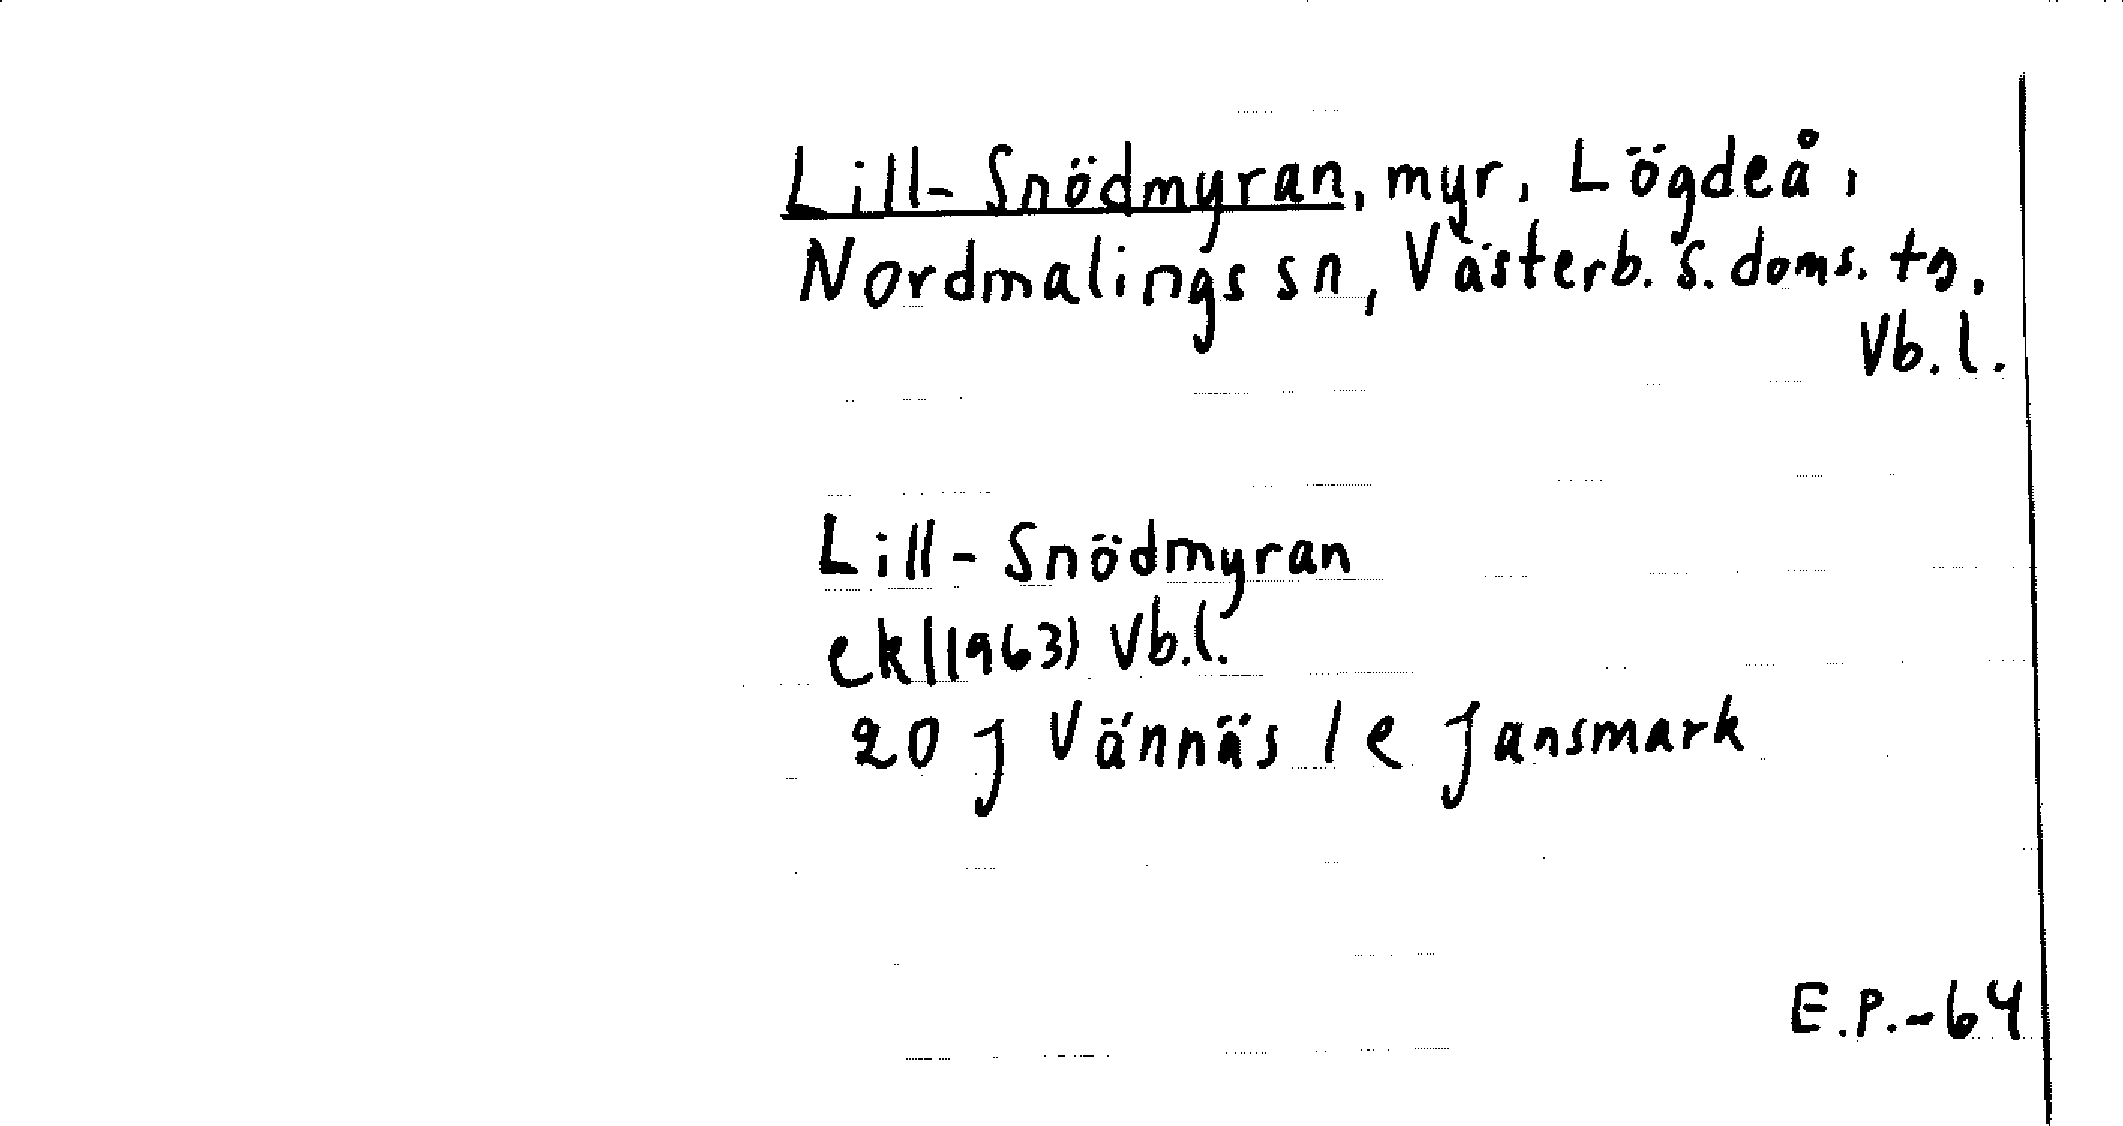 Lill-Snödmyran, myr, Lögdeå,
Nordmalings sn, Västerb. s. doms. tg,
Vb. l.
Lill-Snödmyran
ek (1963) Vb.l.
20 J Vännäs / e Jansmark
E.P.-64